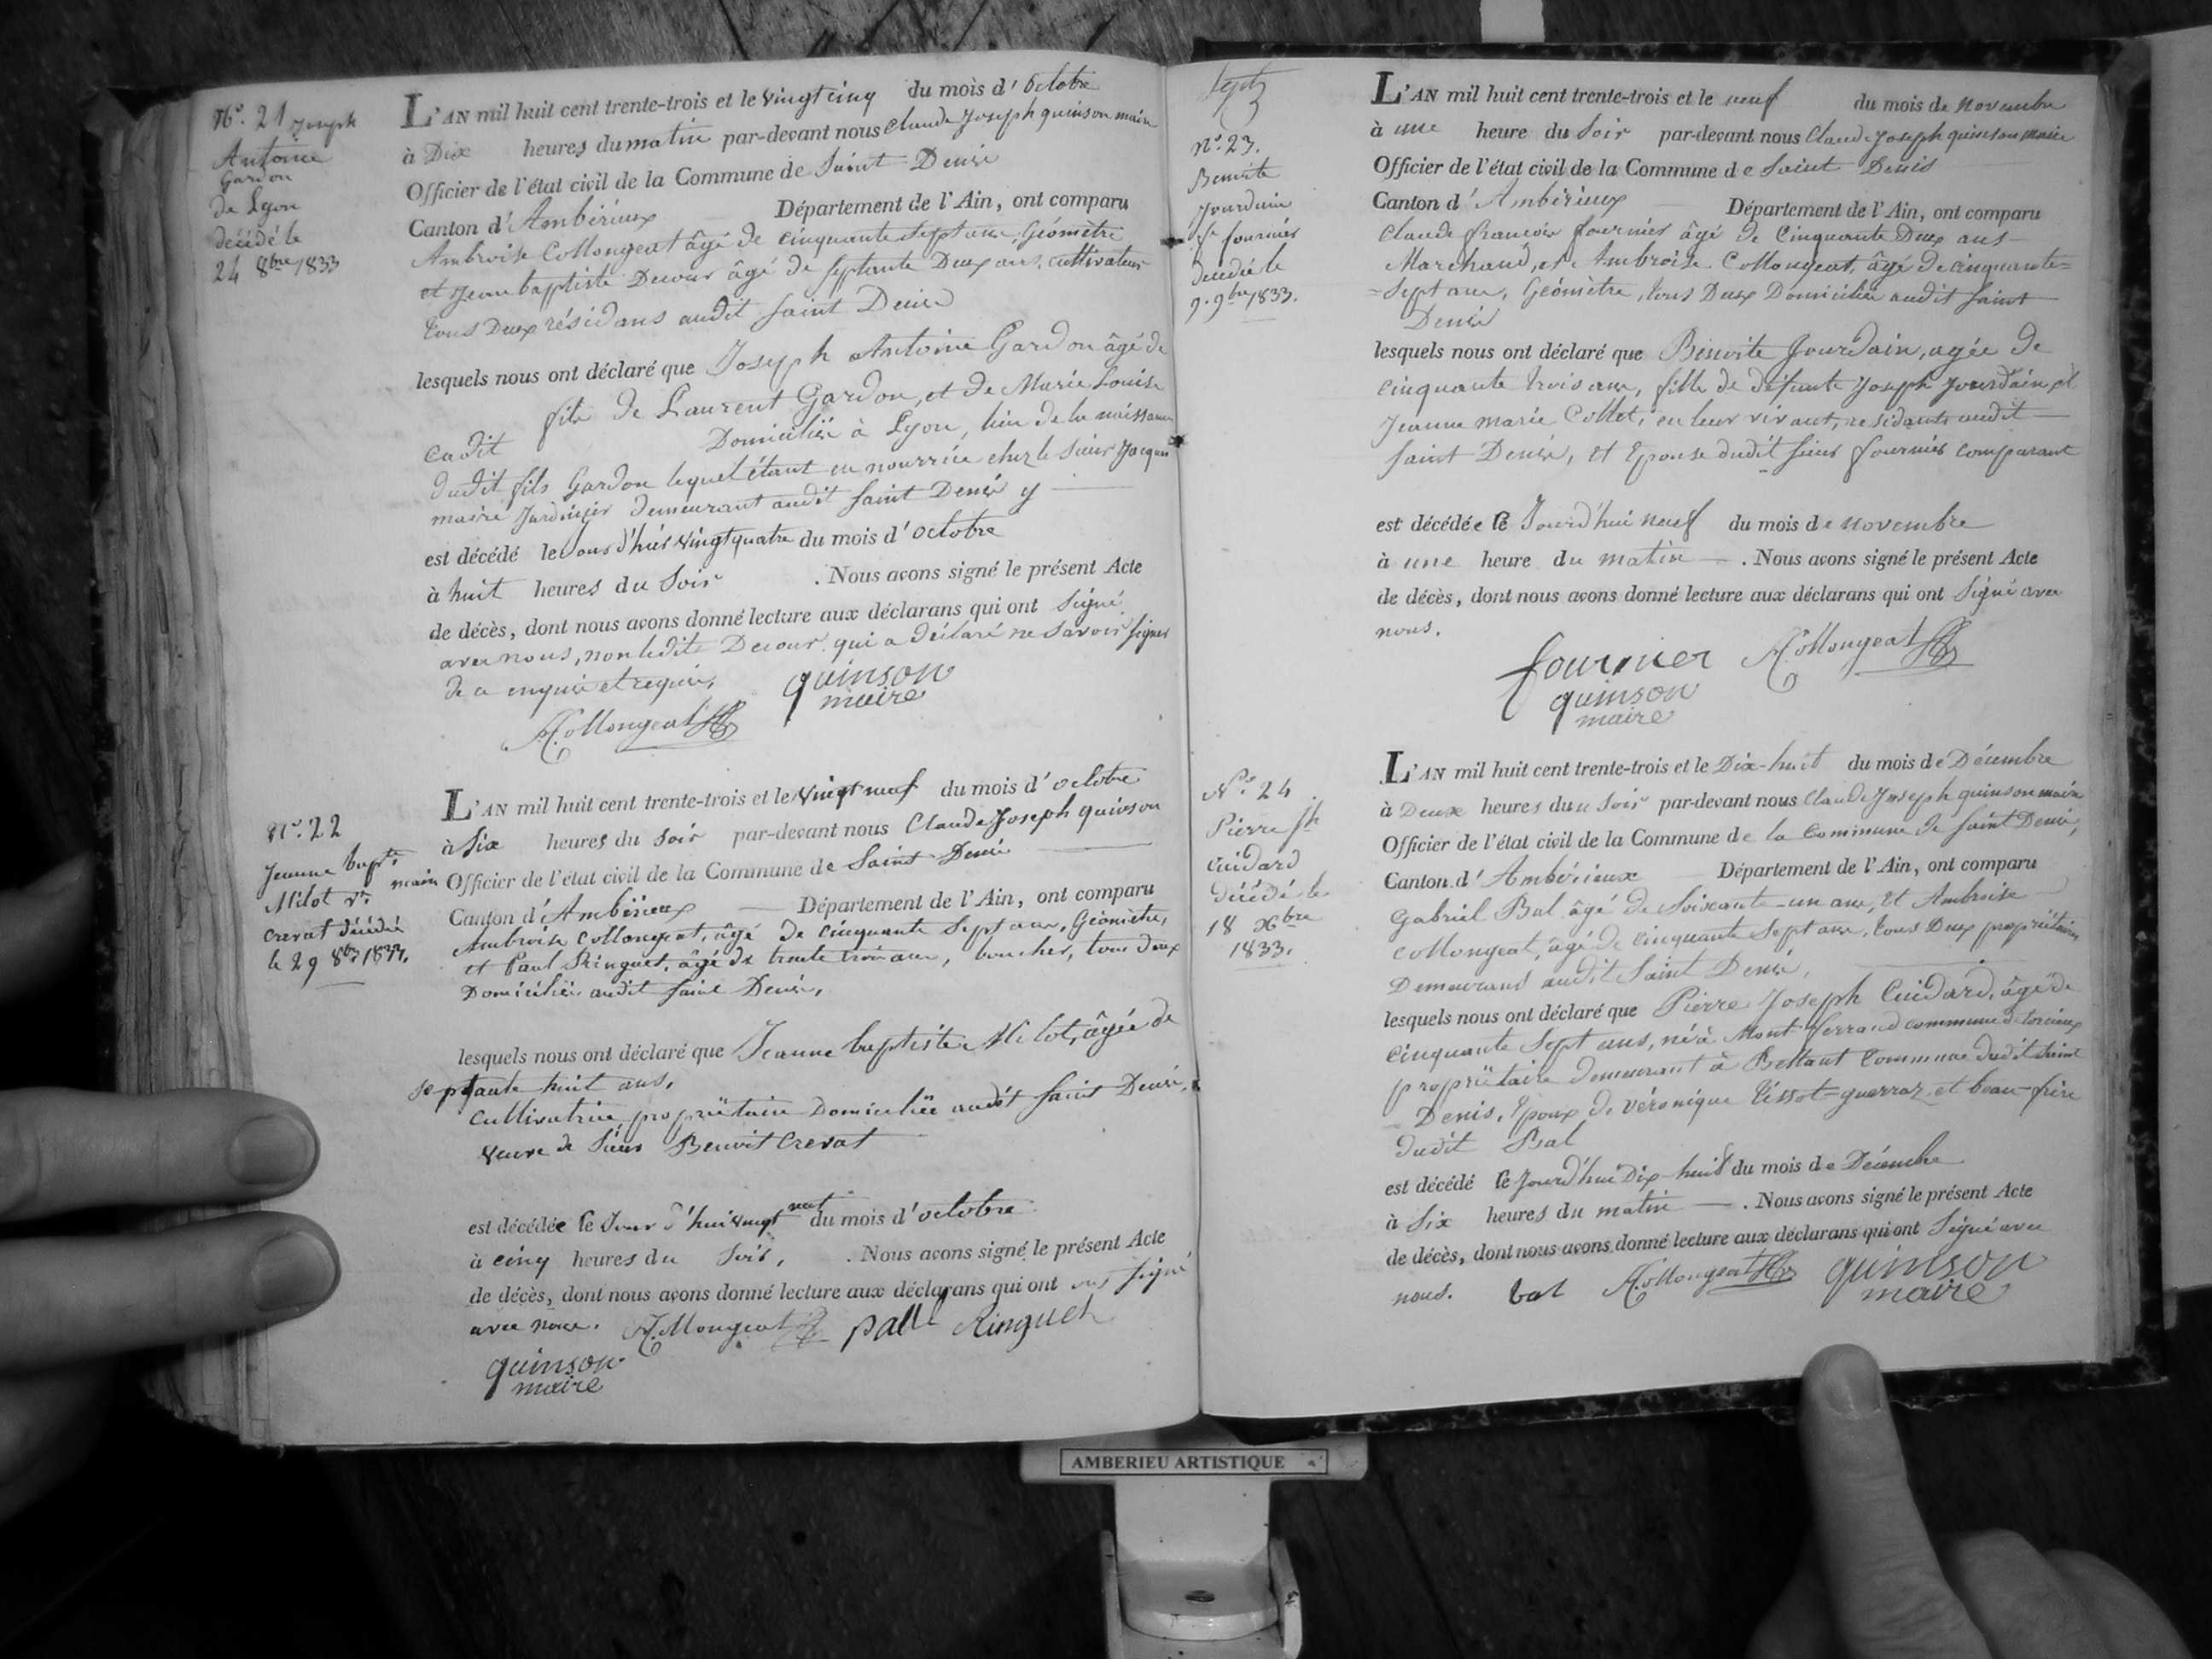 N.° 21 Joseph
Antoine
Gardon
de Lyon
décédé le
24 8bre 1833
L'AN mil huit cent trente-trois et le vingt cinq du mois d'Octobre
à Dix heures du matin par-devant nous Claude Joseph quinson maire
Officier de l'état civil de la Commune de Saint Denis
Canton d'Ambérieux Département de l'Ain, ont comparu
Ambroise Collongeat âgé de cinquante sept ans, Géomètre
et Jean baptiste Decour âgé de septante Deux ans, cultivateur
tous Deux résidans audit Saint Denis
lesquels nous ont déclaré que Joseph Antoine Gardon âgé de
fils de Laurent Gardon, et de Marie Louise
cadit Domiciliés à Lyon, lieu de la naissance
dudit fils Gardon lequel étant en nourrice chez le sieur Jacques
maire Jardinier demeurant audit Saint Denis y
est décédé le Jour d'hier vingt quatre du mois d'octobre
à huit heures du Soir . Nous avons signé le présent Acte
de décès, dont nous avons donné lecture aux déclarans qui ont signé
avec nous, non ledit Decour qui a déclaré ne savoir signer
de ce enquis et requis,
quinson
maire
A. Collongeat
N.° 22
Jeanne bapte
Milot ve
crevat décédée
le 29 8bre 1833.
L'AN mil huit cent trente-trois et le vingt neuf du mois d'octobre
à Six heures du Soir par-devant nous Claude Joseph quinson
maire Officier de l'état civil de la Commune de Saint Denis
Canton d'Ambérieux Département de l'Ain, ont comparu
Ambroise Collongeat, âgé de cinquante sept ans, Géomètre,
et Paul Ringuet, âgé de trente trois ans, boucher, tous deux
Domiciliés audit Saint Denis,
lesquels nous ont déclaré que Jeanne baptiste Milot, âgée de
septante huit ans,
cultivatrice propriétaire Domiciliée audit Saint Denis,
veuve de Sieur Benoit Crevat
est décédée le Jour d'hui vingt neuf du mois d'octobre
à cinq heures du Soir, . Nous avons signé le présent Acte
de décès, dont nous avons donné lecture aux déclarans qui ont signé
avec nous. A. Collongeat pall Ringuet
quinson
maire
N.° 23.
Benoite
Jourdain
fe fournier
décédée le
9. 9bre 1833.
L'AN mil huit cent trente-trois et le neuf du mois de novembre
à une heure du Soir par-devant nous Claude Joseph quinson maire
Officier de l'état civil de la Commune de Saint Denis
Canton d'Ambérieux Département de l'Ain, ont comparu
Claude francois fournier âgé de Cinquante Deux ans
Marchand, et Ambroise Collongeat, âgé de cinquante=
=Sept ans, Géomètre, tous Deux Domiciliés audit Saint
Denis
lesquels nous ont déclaré que Benoite Jourdain, agée de
cinquante trois ans, fille de défunts Joseph Jourdain, et
Jeanne marie Collet, en leur vivant, residants audit
Saint Denis, et Epouse dudit sieur fournier comparant
est décédée le Jourd'hui neuf du mois de novembre
à une heure du matin . Nous avons signé le présent Acte
de décès, dont nous avons donné lecture aux déclarans qui ont Signé avec
nous.
fournier A. Collongeat
quinson
maire
N.° 24
Pierre jh
Cuidard
décédé le
18 Xbre
1833.
L'AN mil huit cent trente-trois et le Dix-huit du mois de Décembre
à Deux heures du Soir par-devant nous Claude Joseph quinson maire
Officier de l'état civil de la Commune de la Commune de Saint Denis,
Canton d'Ambérieux Département de l'Ain, ont comparu
Gabriel Bal âgé de Soixante-un ans, et Ambroise
Collongeat, âgé de cinquante Sept ans, tous Deux propriétaires
Demeurans audit Saint Denis,
lesquels nous ont déclaré que Pierre Joseph Cuidard, âgé de
cinquante Sept ans, né à Mont ferrand commune de torcieux
propriétaire demeurant à Bettant Commune dudit Saint
Denis, Epoux de véronique tissot=guerraz et beau-frère
dudit Bal
est décédé le Jourd'hui Dix-huit du mois de Décembre
à Six heures du matin . Nous avons signé le présent Acte
de décès, dont nous avons donné lecture aux déclarans qui ont Signé avec
nous. bal A. Collongeat quinson
maire
AMBERIEU ARTISTIQUE